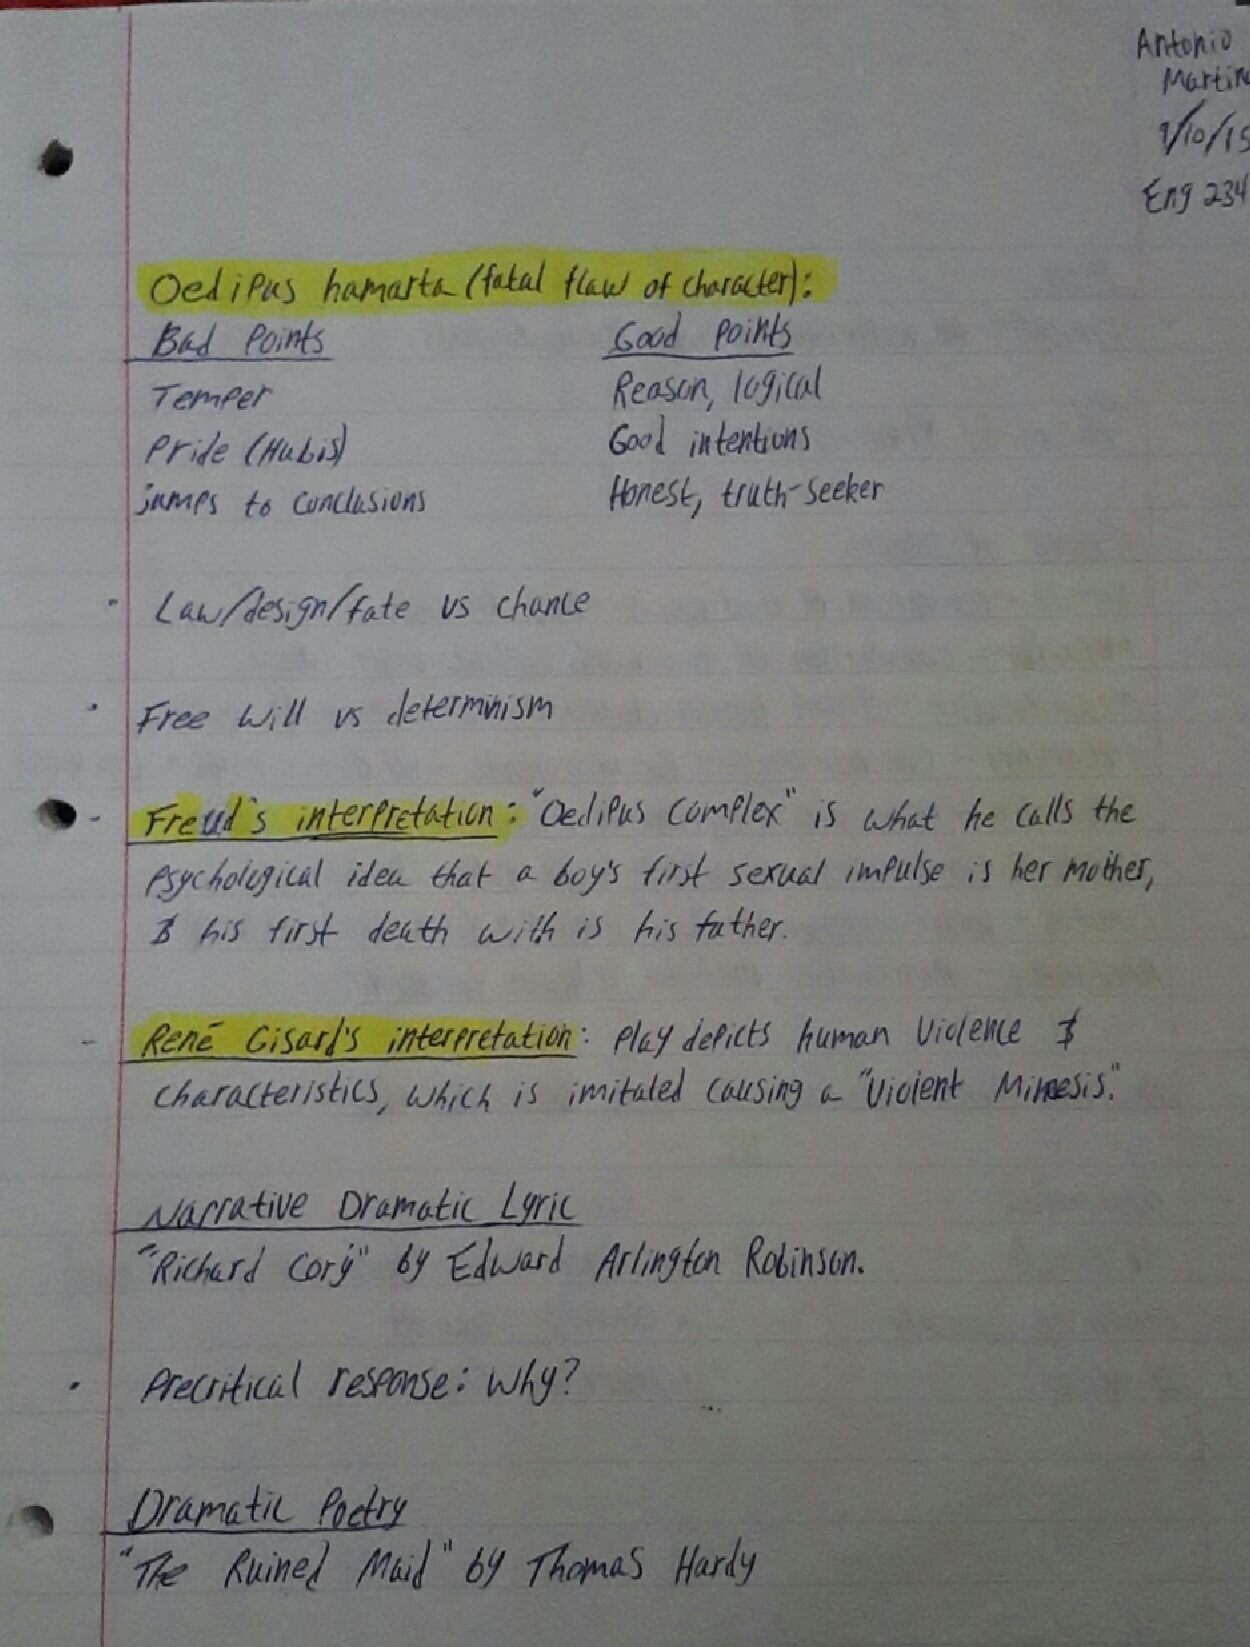 Antonio
Martin
9/10/15
Eng 234
Oedipus hamarta (fatal flaw of character):
Bad Points Good points
Temper Reason, logical
Pride (Hubis) Good intentions
jumps to conclusions Honest, truth-seeker
Law/design/fate vs chance
Free will vs determinism
- Freud's interpretation: "Oedipus Complex" is what he calls the
psychological idea that a boy's first sexual impulse is her mother,
& his first death with is his father.
- René Gisard's interpretation: Play depicts human violence &
characteristics, which is imitated causing a "Violent Mimesis."
Narrative Dramatic Lyric
"Richard Cory" by Edward Arlington Robinson.
Precritical response: Why?
Dramatic Poetry
"The Ruined Maid" by Thomas Hardy